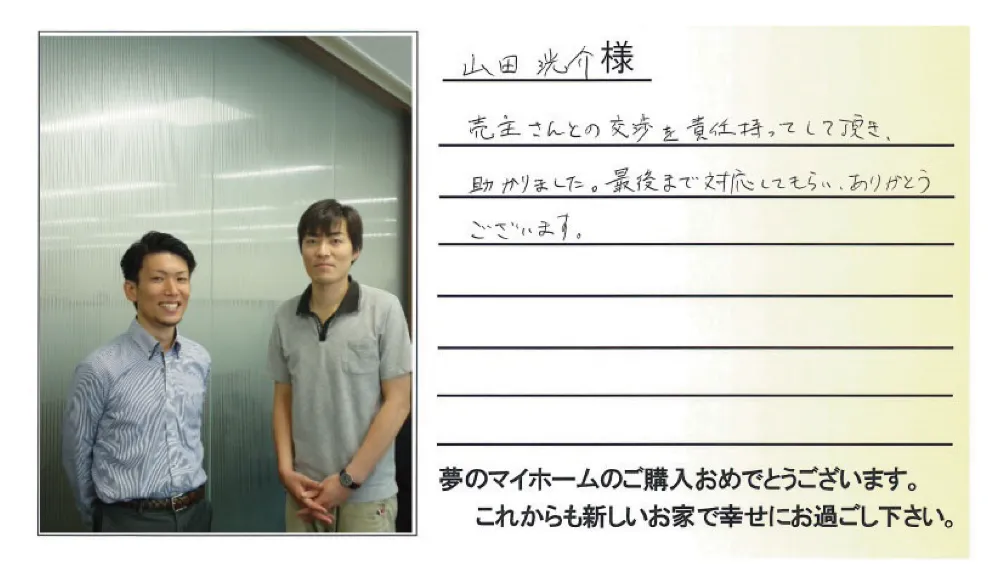 山田 洸介様
売主さんとの交渉を責任持ってして頂き、
助かりました。最後まで対応してもらい、ありがとう
ございます。
夢のマイホームのご購入おめでとうございます。
これからも新しいお家で幸せにお過ごし下さい。